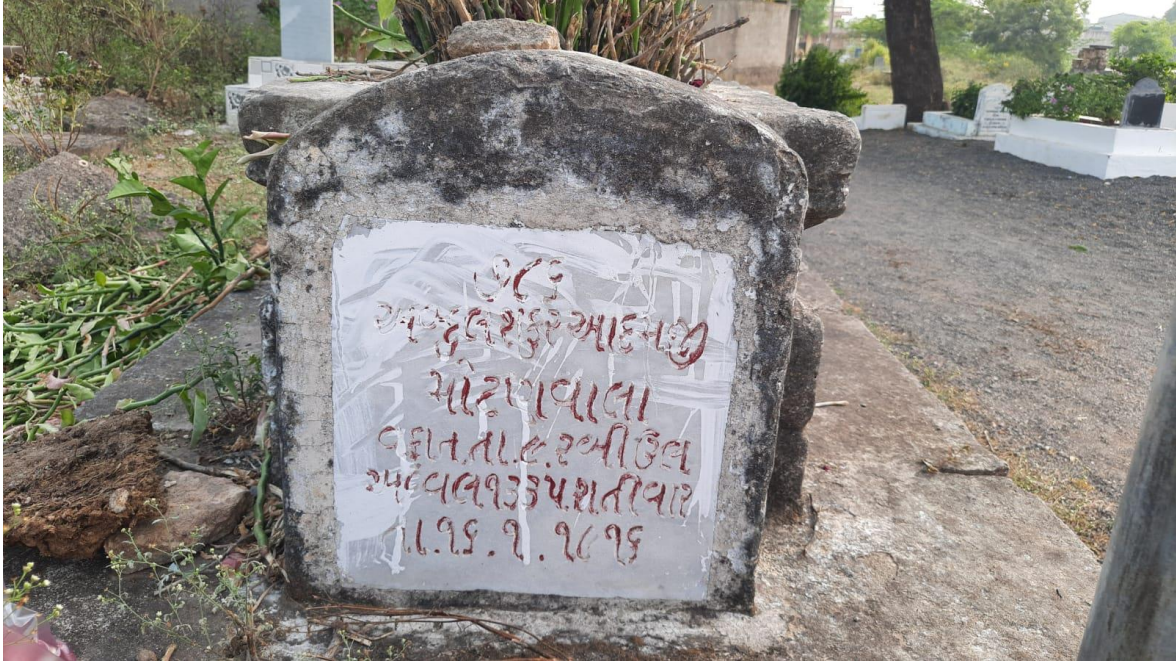 ૭૮૬
અબ્દુલશકુર આદમજી
મોટણવાલા
વફાત તા. ૯. રબીઉલ
અવ્વલ ૧૩૩૫ શનીવાર
તા. ૧૬. ૧. ૧૯૧૬